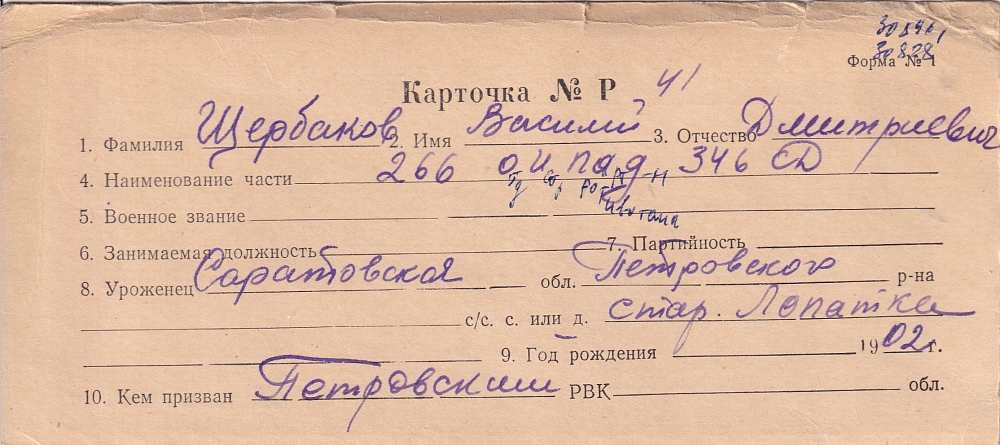 30828
Форма № 1
Карточка № Р 41
1. Фамилия Щербаков 2. Имя Василий 3. Отчество Дмитриевич
4. Наименование части 266 346 СД
5. Военное звание
6. Занимаемая должность 7. Партийность
8. Уроженец Саратовская обл. Петровского р-на
с/с. с. или д. Стар. Лопатка
9. Год рождения 1902 г.
10. Кем призван Петровским РВК обл.